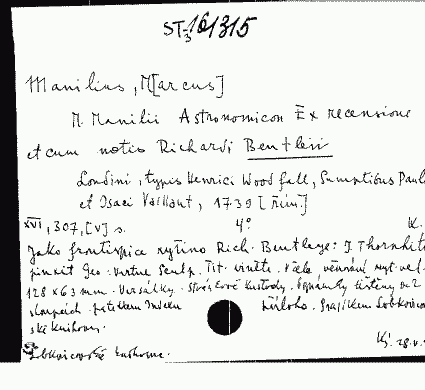 ST-3 161315
Manilius, M[arcus]
M. Manilii Astronomicon Ex recensione
et cum notis Richardi Bentleii
Londini, typis Henrici Woodfall, Sumptibus Pauli
et Isaci Vaillant, 1739 [řím]
XVI, 307, [V] s. 4° K.
Jako frontispice rytina Rich. Bentleye: J Thornhill
pinxit Geo. Vertue Sculp. Tit. viněta. Včele věnování
128 x 63 mm. Versálky. Stránkové kustody. tištěny ve 2
sloupcích. Index příloha. Lobkovicov
ské knihovny.
Lobkovicovská knihovna.
Kj. 28.V.